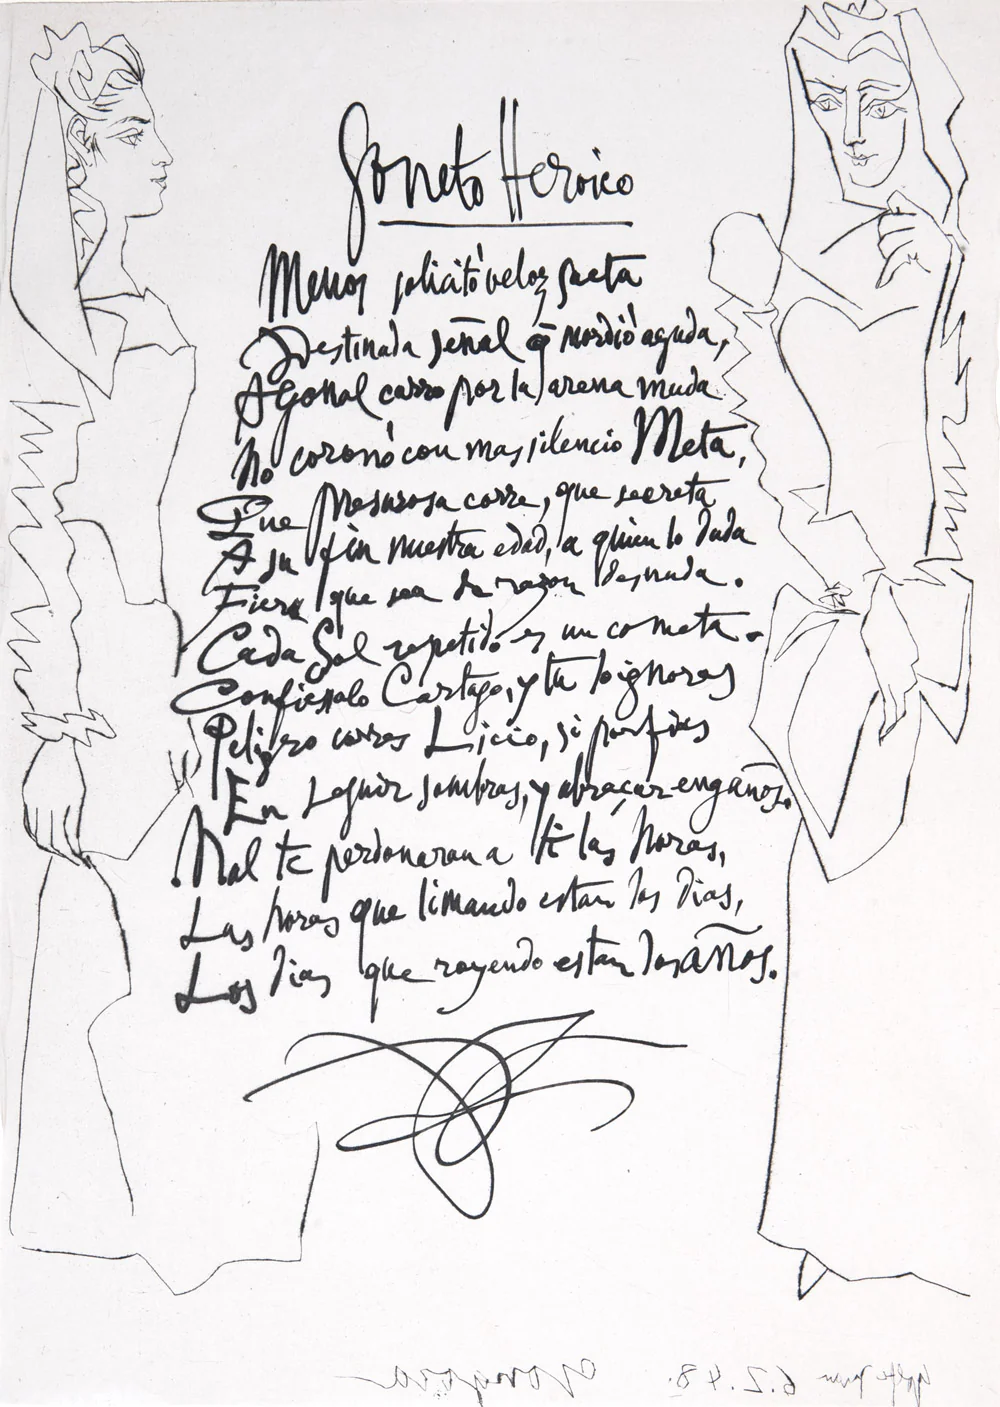 Soneto Heroico
Menos solicitó veloz saeta
Destinada señal q̄ mordió aguda,
Agonal carro por la arena muda
No coronó con mas silencio Meta,
Que presurosa corre, que secreta
A su fin nuestra edad, a quien lo duda
Fiera que sea de razon desnuda.
Cada Sol repetido es un cometa.
Confiesalo Cartago, y tu lo ignoras
Peligro corres Licio, si porfias
En seguir sombras, y abraçar engaños.
Mal te perdonaran a ti las horas,
Las horas que limando estan los dias,
Los dias que royendo estan los años.
Golfe Juan 6.2.48. Gongora